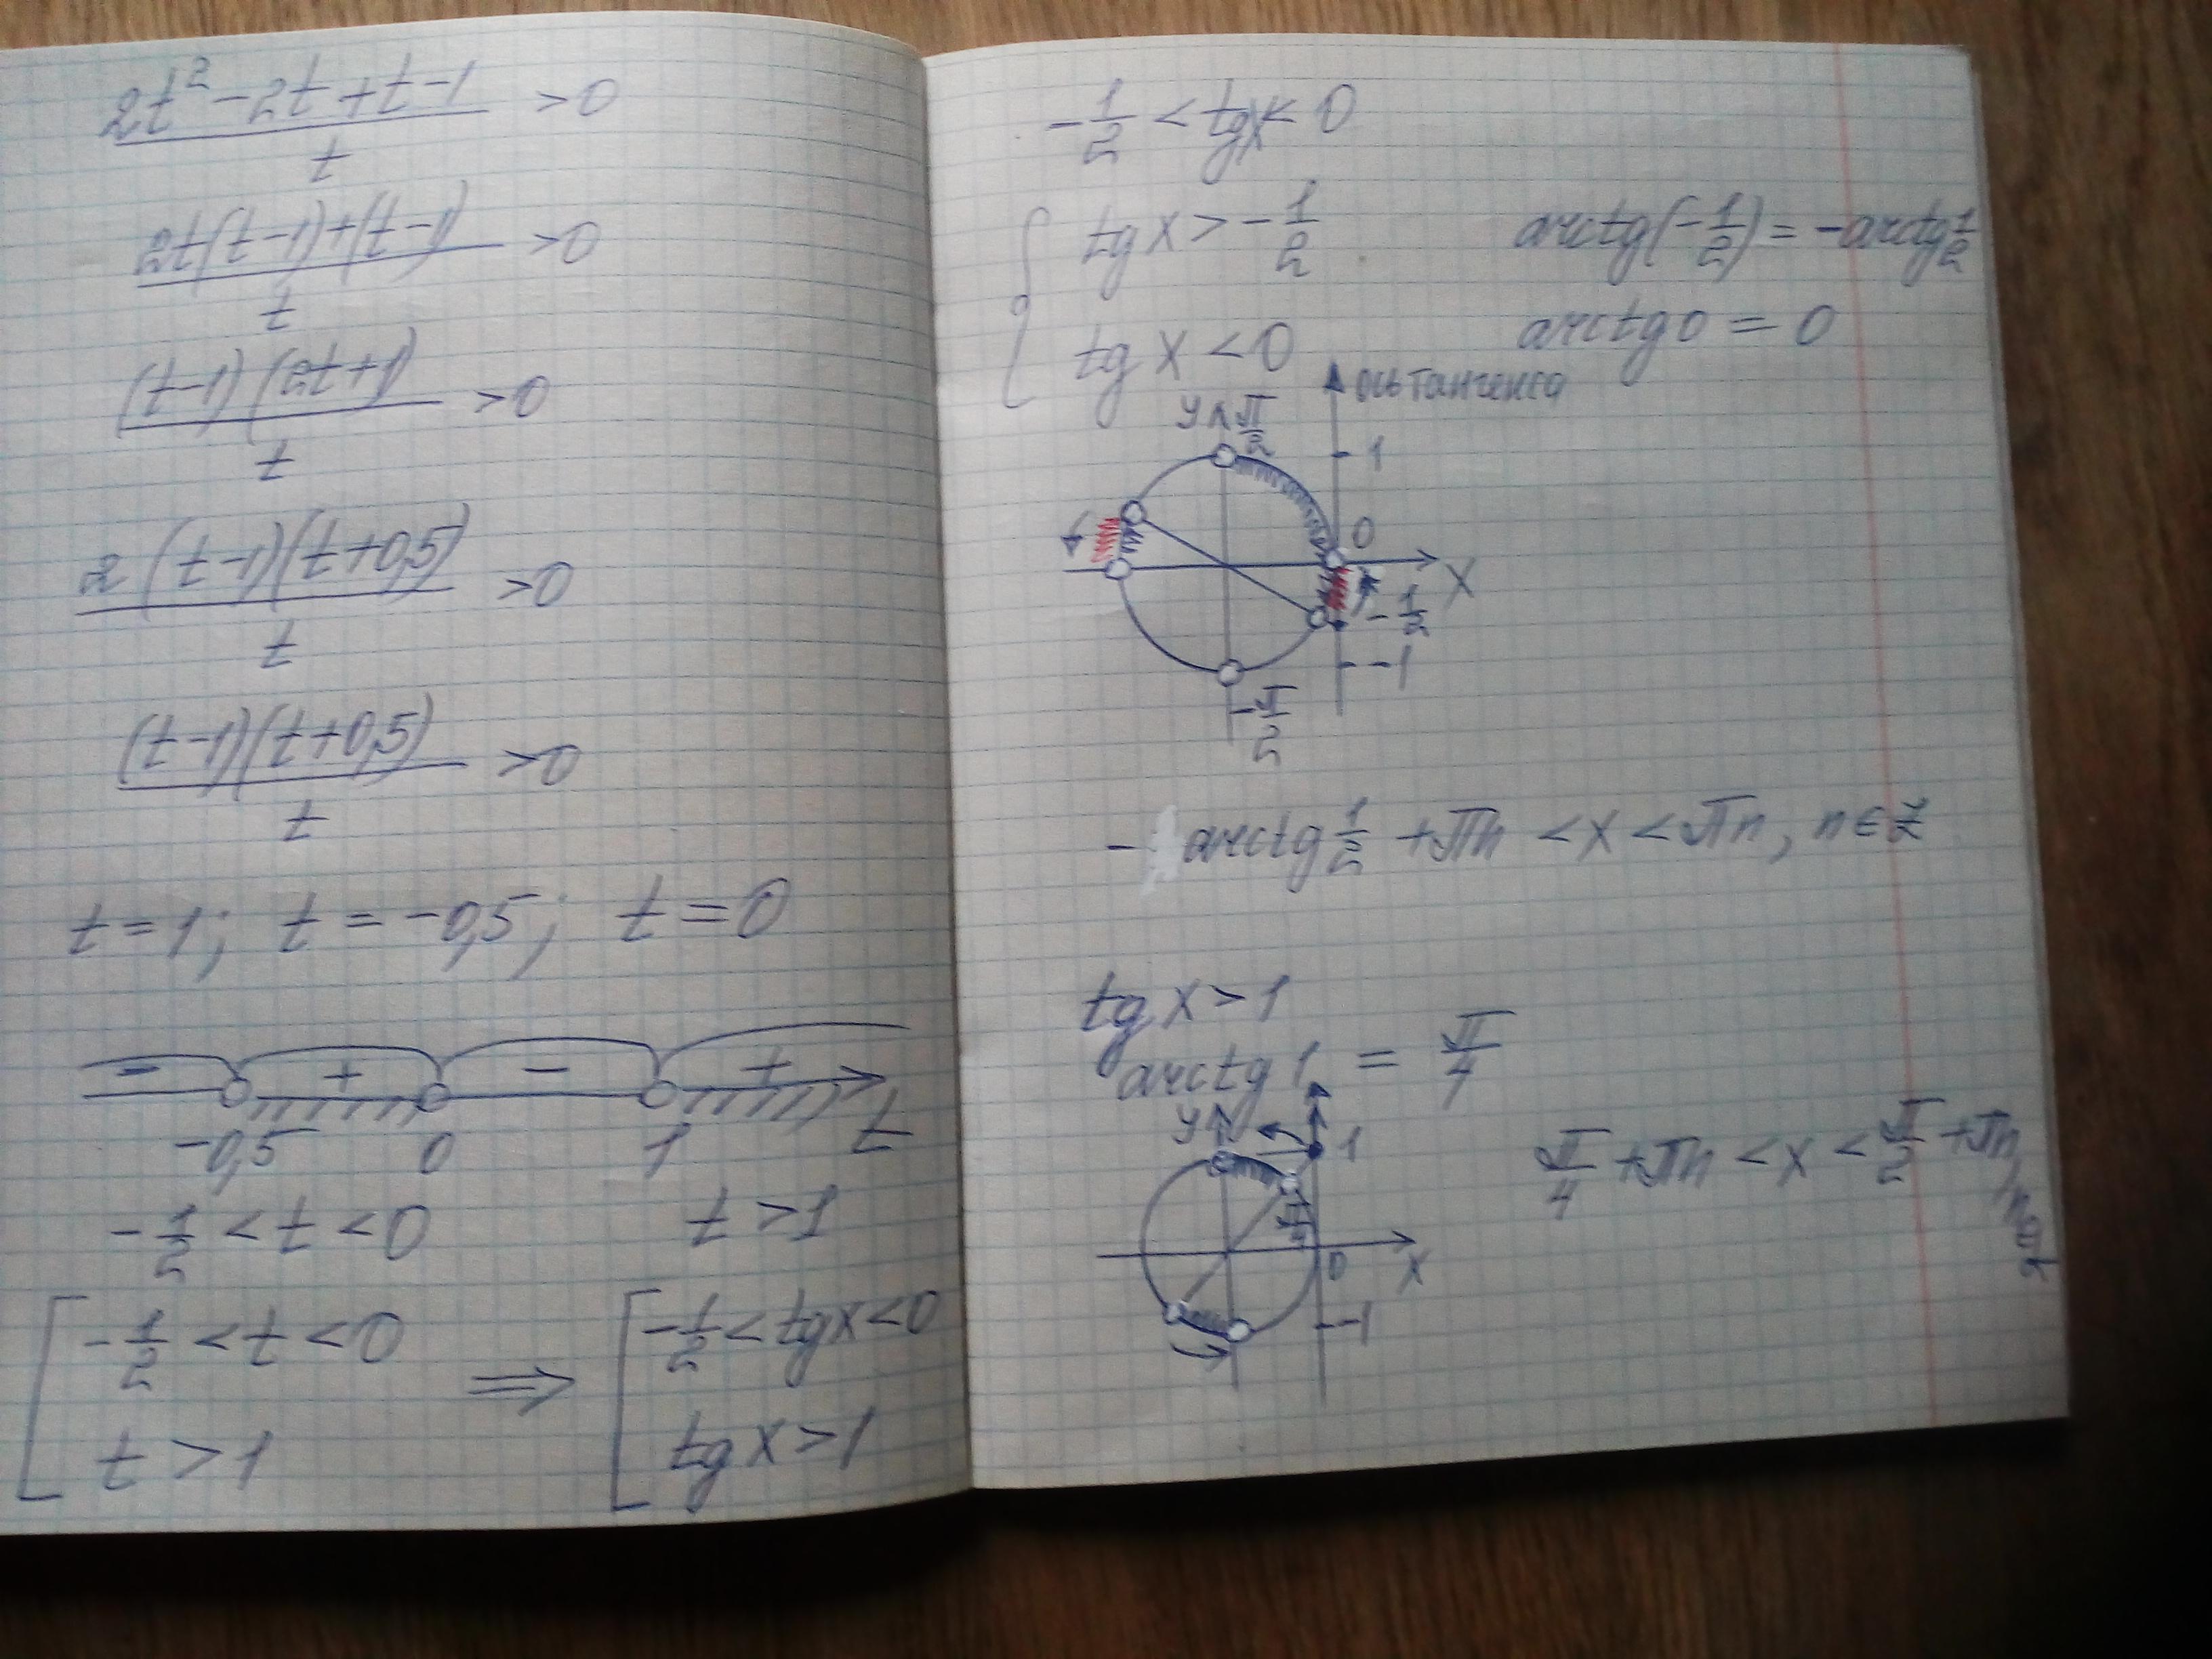 2t² - 2t + t - 1 / t > 0
2t(t-1)+(t-1) / t > 0
(t-1)(2t+1) / t > 0
2(t-1)(t+0,5) / t > 0
(t-1)(t+0,5) / t > 0
t = 1; t = -0,5; t = 0
- + - +
-0,5 0 1 t
-1/2 < t < 0 t > 1
[ -1/2 < t < 0 ⟹ [ -1/2 < tgx < 0
t > 1 tgx > 1
-1/2 < tgx < 0
{ tgx > -1/2 arctg(-1/2) = -arctg 1/2
tgx < 0 arctg 0 = 0
ось тангенса
y π/2
1
0
x
-1/2
-1
-π/2
- arctg 1/2 + πn < x < πn, n ∈ Z
tgx > 1
arctg 1 = π/4
y 1
π/4
0 x
-1
π/4 + πn < x < π/2 + πn, n∈Z